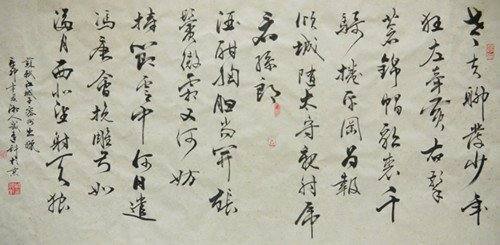 老夫聊發少年
狂左牽黃右擎
蒼錦帽貂裘千
騎捲平岡為報
傾城隨太守親射虎
看孫郎
酒酣胸胆尚開張
鬢微霜又何妨
持節雲中何日遣
馮唐會挽雕弓如
滿月西北望射天狼
蘇軾江城子密州出獵
辛卯年